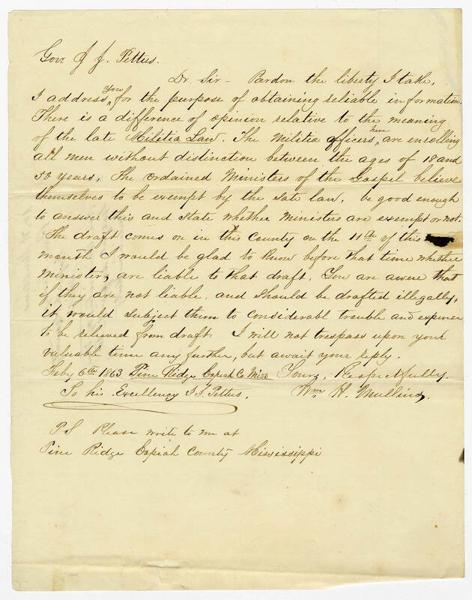 Gov. J. J. Pettus.
Dr. Sir - Pardon the liberty I take,
I address you for the purpose of obtaining reliable information.
There is a difference of opinion relative to the meaning
of the late Militia Law. The Militia officers, here are enrolling
all men without distinction between the ages of 18 and
50 years, The ordained Ministers of the Gospel believe
themselves to be exempt by the late law. be good enough
to answer this and State whether Ministers are exempt or not.
The draft comes on in this County on the 11th of this
month I would be glad to know before that time whether
Ministers, are liable to that draft. You are aware that
if they are not liable, and should be drafted illegally,
it would subject them to considerable trouble and expense
to be relieved from draft. I will not trespass upon your
valuable time any further, but await your reply.
Feby 6th 1863 Pine Ridge Copiah Co Miss Yours, Respectfully
To his Excellency J. J. Pettus. Wm H. Mullins,
P S Please write to me at
Pine Ridge Copiah County Mississippi